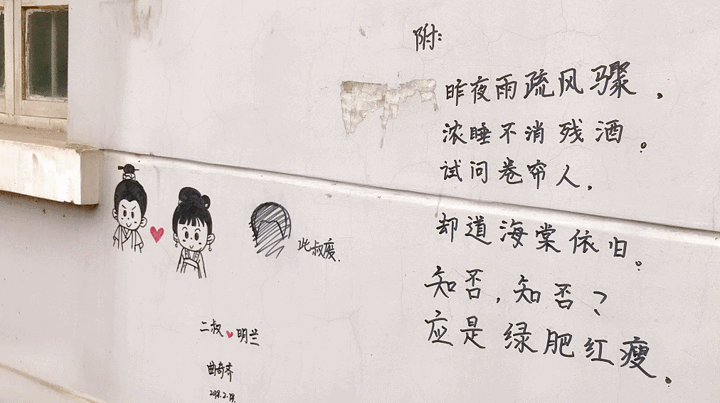 附:
昨夜雨疏风骤，
浓睡不消残酒。
试问卷帘人，
却道海棠依旧。
知否，知否？
应是绿肥红瘦。
此叔废.
二叔 明兰
曲奇齐